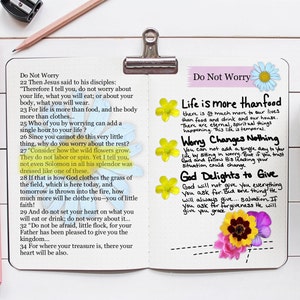 Do Not Worry
22 Then Jesus said to his disciples:
"Therefore I tell you, do not worry about
your life, what you will eat; or about your
body, what you will wear.
23 For life is more than food, and the body
more than clothes...
25 Who of you by worrying can add a
single hour to your life?
26 Since you cannot do this very little
thing, why do you worry about the rest?
27 "Consider how the wild flowers grow.
They do not labor or spin. Yet I tell you,
not even Solomon in all his splendor was
dressed like one of these.
28 If that is how God clothes the grass of
the field, which is here today, and
tomorrow is thrown into the fire, how
much more will he clothe you—you of little
faith!
29 And do not set your heart on what you
will eat or drink; do not worry about it...
32 "Do not be afraid, little flock, for your
Father has been pleased to give you the
kingdom...
34 For where your treasure is, there your
heart will be also.
Do Not Worry
Life is more than food
There is much more to our lives
than food and drink and our house.
There are eternal, spiritual things
happening. This life is temporal.
Worry Changes Nothing
You can not add a single day to your
life by being in worry. But if you trust
God and follow His leading your
situation could change.
God Delights to Give
God will not give you everything
you ask for But one thing He
will always give... Salvation. If
you ask for forgiveness He will
give you grace